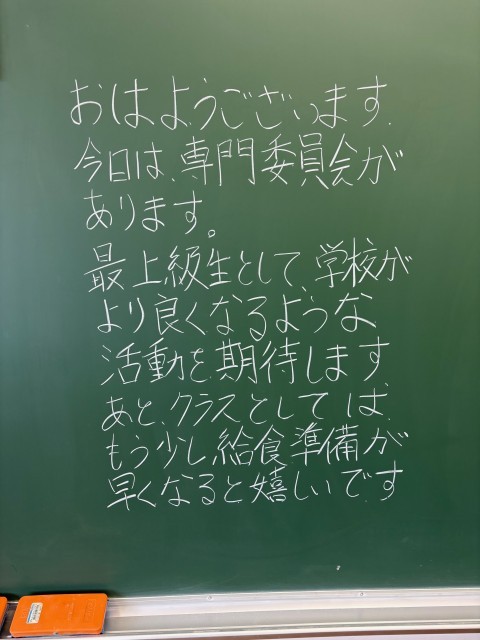 おはようございます.
今日は、専門委員会が
あります。
最上級生として、学校が
より良くなるような
活動を期待します
あと、クラスとしては、
もう少し給食準備が
早くなると嬉しいです